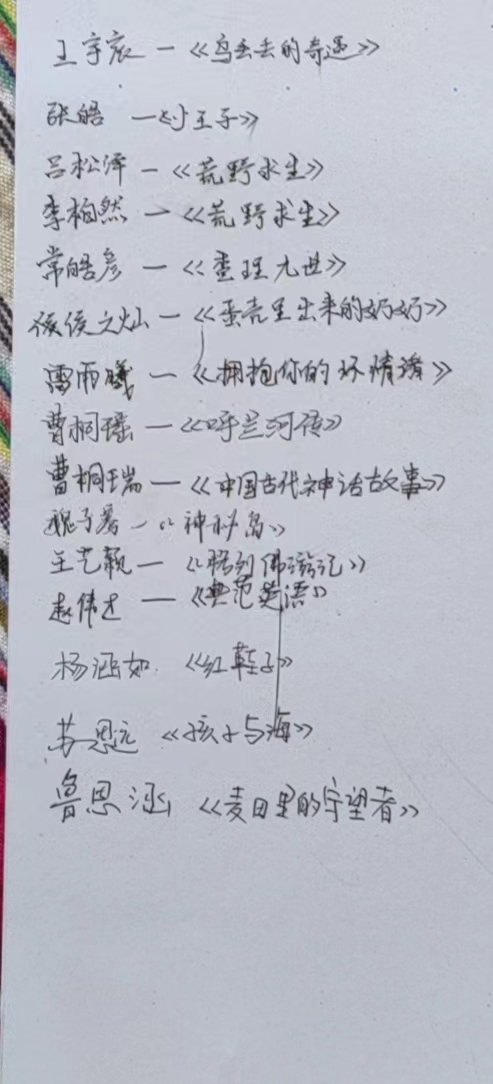 王宇宸 — 《乌丢丢的奇遇》
张皓 — 《小王子》
吕松泽 — 《荒野求生》
李柏然 — 《荒野求生》
常皓彦 — 《查理九世》
侯侯之灿 — 《蛋壳里出来的奶奶》
雷雨曦 — 《拥抱你的坏情绪》
曹桐瑶 — 《呼兰河传》
曹桐瑞 — 《中国古代神话故事》
魏子 — 《神秘岛》
王艺颖 — 《格列佛游记》
赵伟 — 《典范英语》
杨涵如 《红鞋子》
苏恩元 《孩子与海》
鲁思涵 《麦田里的守望者》